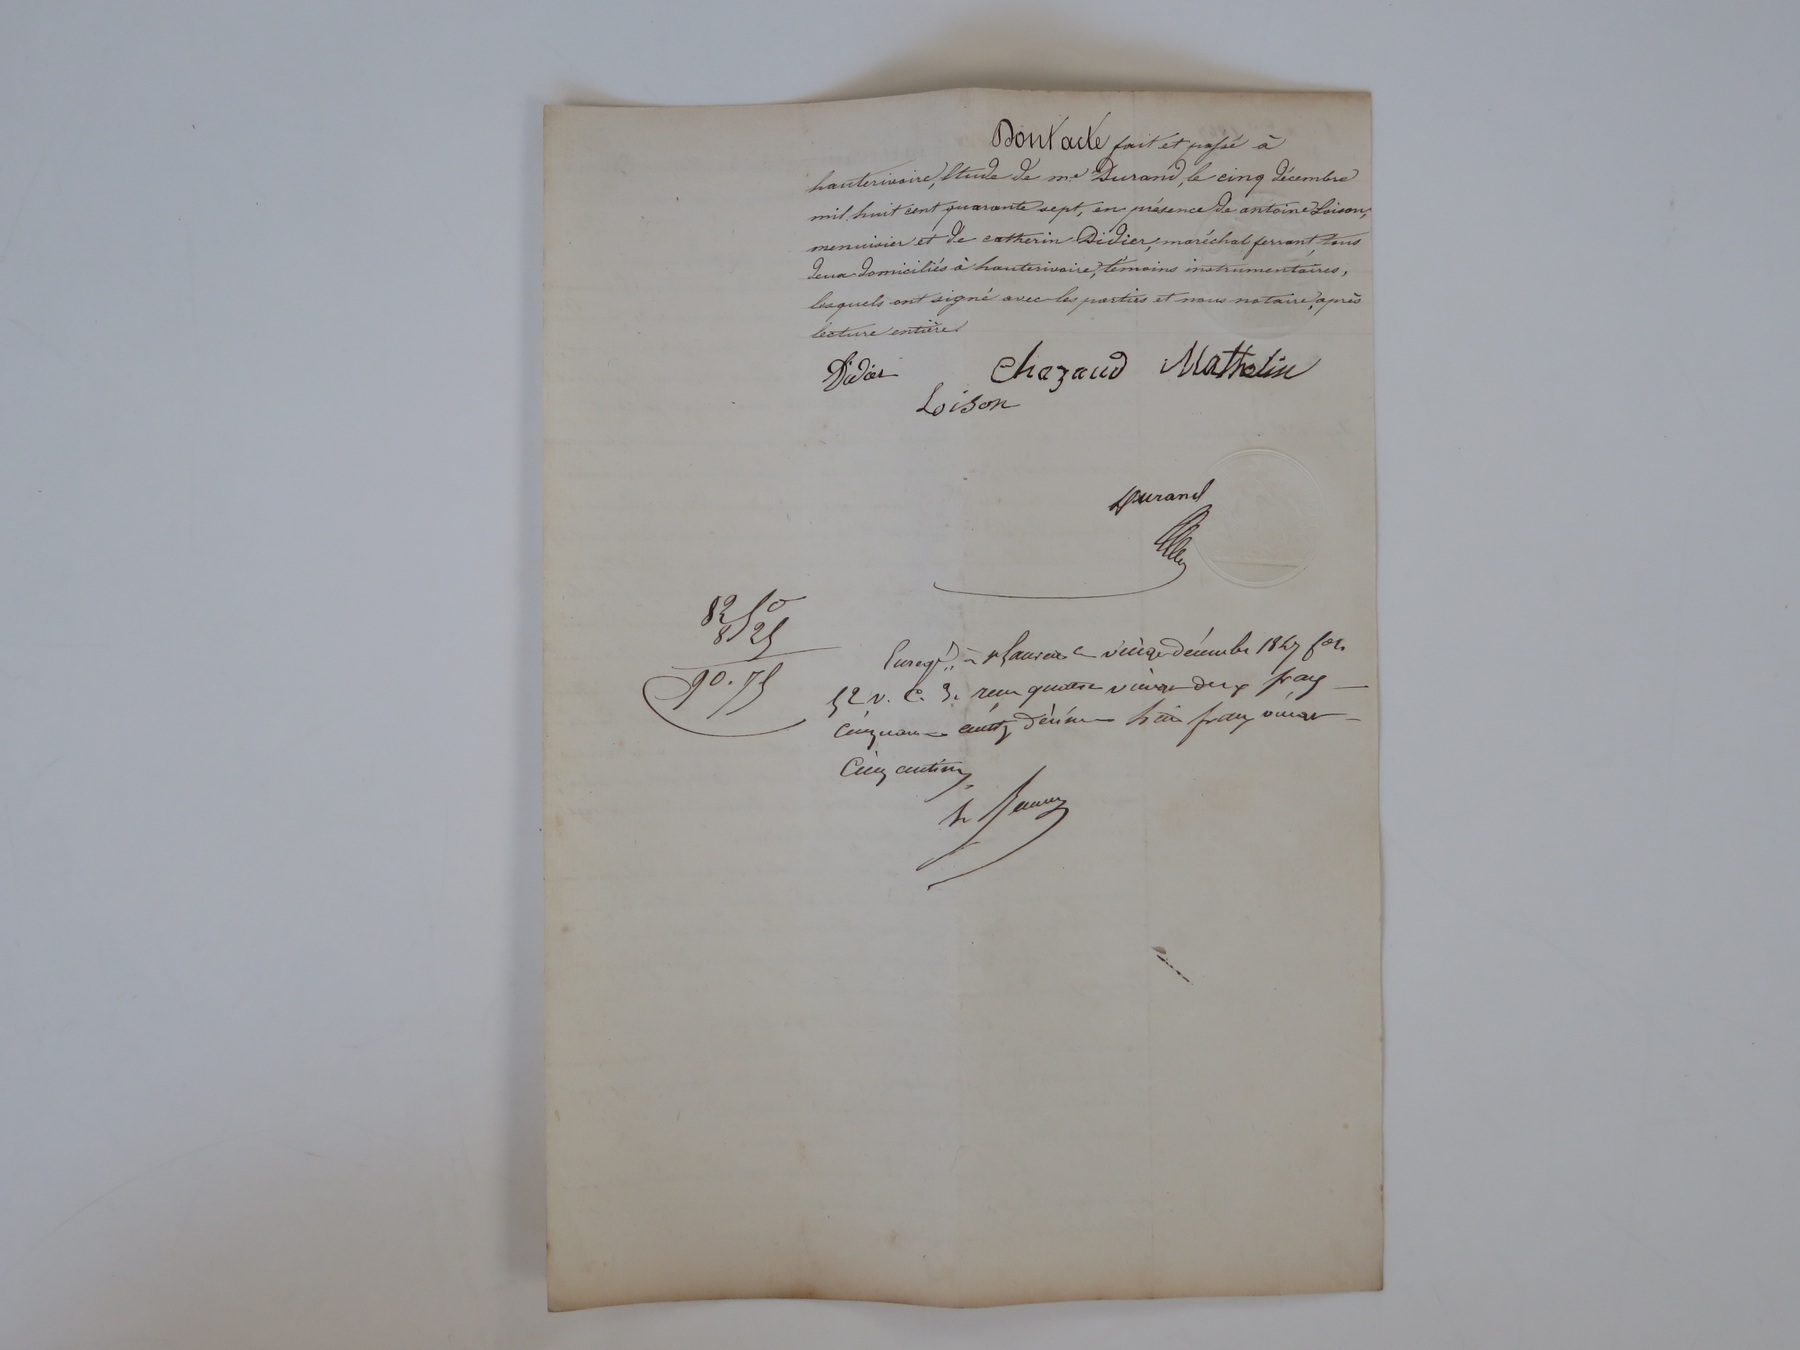 Dont acte fait et passé à
hauterivoire, Etude de me Durand, le cinq décembre
mil huit cent quarante sept, en présence de antoine Loison,
menuisier et de catherin Didier, maréchal ferrant, tous
deux domiciliés à hauterivoire, témoins instrumentaires,
lesquels ont signé avec les parties et nous notaire, après
lecture entière.
Didier Chazaud Mathelin
Loison
Durand
82 50
8 25
90.75
Enregé à le décembre 1847 fol.
52 v. C. 3. reçu quatre vingt deux francs
cinquante centes décime huit francs vingt
cinq centimes